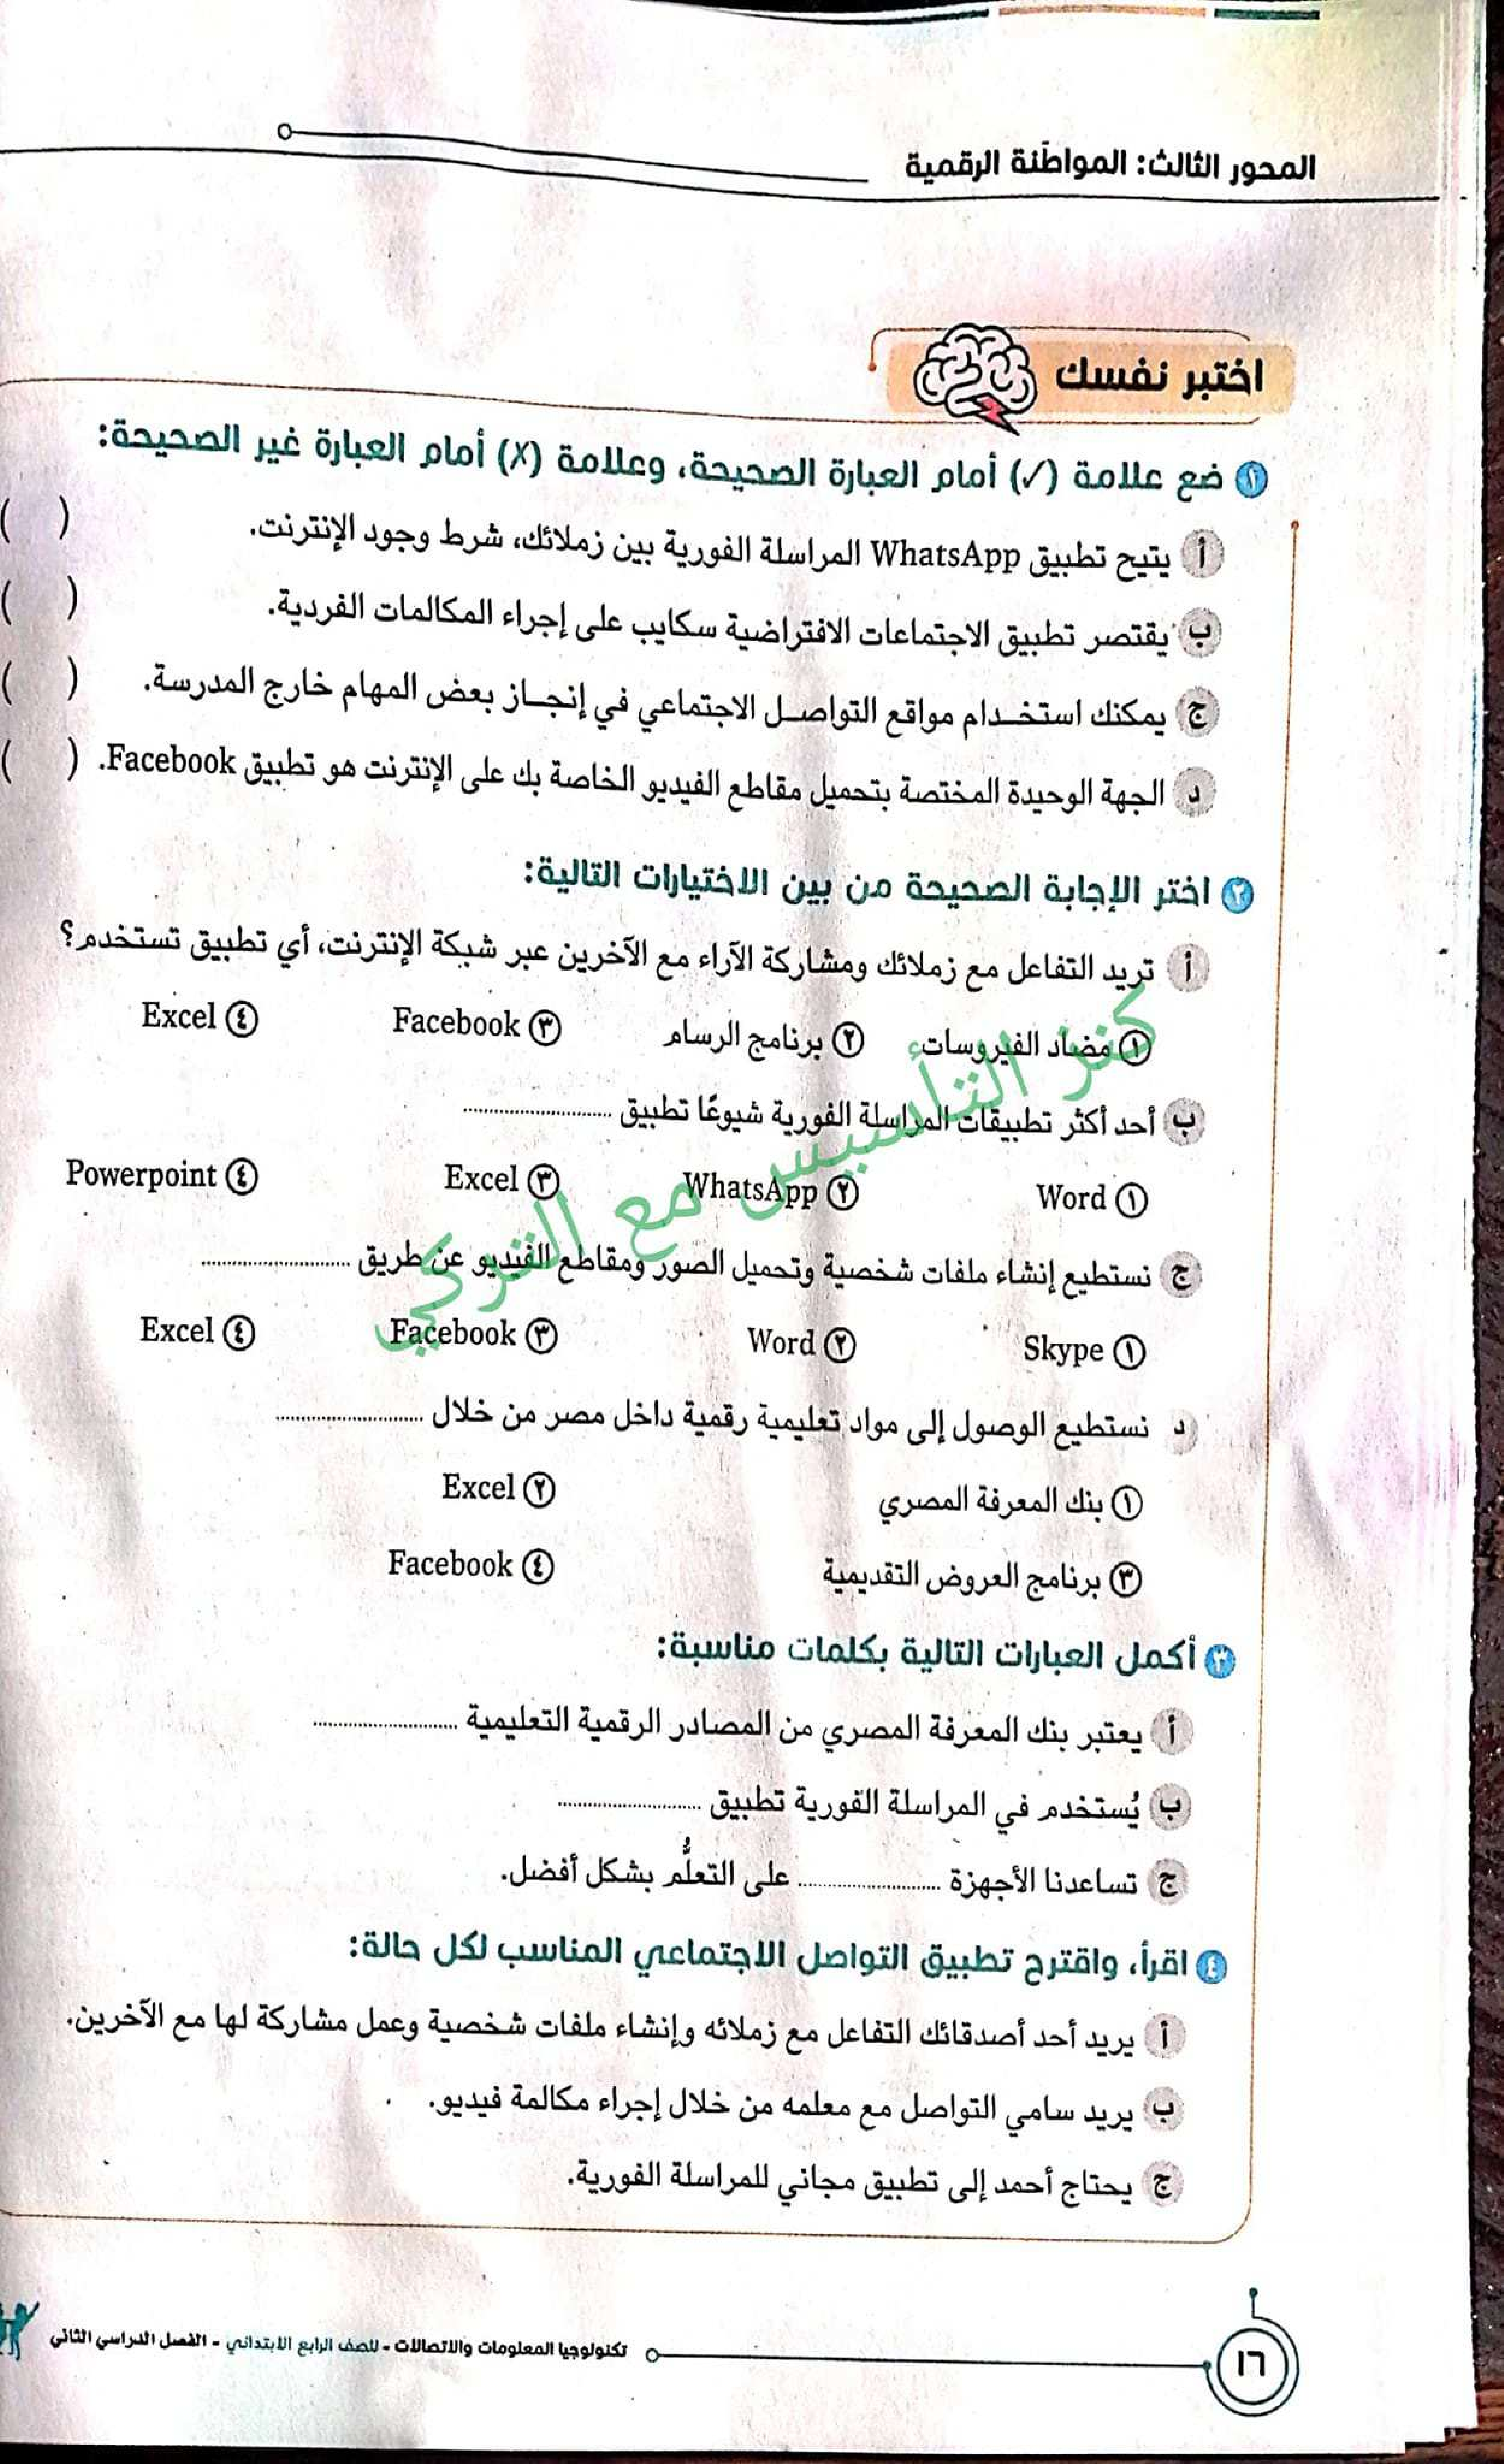 المحور الثالث: المواطَنة الرقمية
اختبر نفسك
١ ضع علامة (✓) أمام العبارة الصحيحة، وعلامة (X) أمام العبارة غير الصحيحة:
أ يتيح تطبيق WhatsApp المراسلة الفورية بين زملائك، شرط وجود الإنترنت. ( )
ب يقتصر تطبيق الاجتماعات الافتراضية سكايب على إجراء المكالمات الفردية. ( )
ج يمكنك استخدام مواقع التواصل الاجتماعي في إنجاز بعض المهام خارج المدرسة. ( )
د الجهة الوحيدة المختصة بتحميل مقاطع الفيديو الخاصة بك على الإنترنت هو تطبيق Facebook. ( )
٢ اختر الإجابة الصحيحة من بين الاختيارات التالية:
أ تريد التفاعل مع زملائك ومشاركة الآراء مع الآخرين عبر شبكة الإنترنت، أي تطبيق تستخدم؟
١ مضاد الفيروسات ٢ برنامج الرسام ٣ Facebook ٤ Excel
ب أحد أكثر تطبيقات المراسلة الفورية شيوعًا تطبيق ........................
١ Word ٢ WhatsApp ٣ Excel ٤ Powerpoint
ج نستطيع إنشاء ملفات شخصية وتحميل الصور ومقاطع الفيديو عن طريق ........................
١ Skype ٢ Word ٣ Facebook ٤ Excel
د نستطيع الوصول إلى مواد تعليمية رقمية داخل مصر من خلال ........................
١ بنك المعرفة المصري ٢ Excel
٣ برنامج العروض التقديمية ٤ Facebook
كنز التأسيس مع التركي
٣ أكمل العبارات التالية بكلمات مناسبة:
أ يعتبر بنك المعرفة المصري من المصادر الرقمية التعليمية ........................
ب يُستخدم في المراسلة الفورية تطبيق ........................
ج تساعدنا الأجهزة ........................ على التعلُّم بشكل أفضل.
٤ اقرأ، واقترح تطبيق التواصل الاجتماعي المناسب لكل حالة:
أ يريد أحد أصدقائك التفاعل مع زملائه وإنشاء ملفات شخصية وعمل مشاركة لها مع الآخرين.
ب يريد سامي التواصل مع معلمه من خلال إجراء مكالمة فيديو.
ج يحتاج أحمد إلى تطبيق مجاني للمراسلة الفورية.
١٦ تكنولوجيا المعلومات والاتصالات - للصف الرابع الابتدائي - الفصل الدراسي الثاني